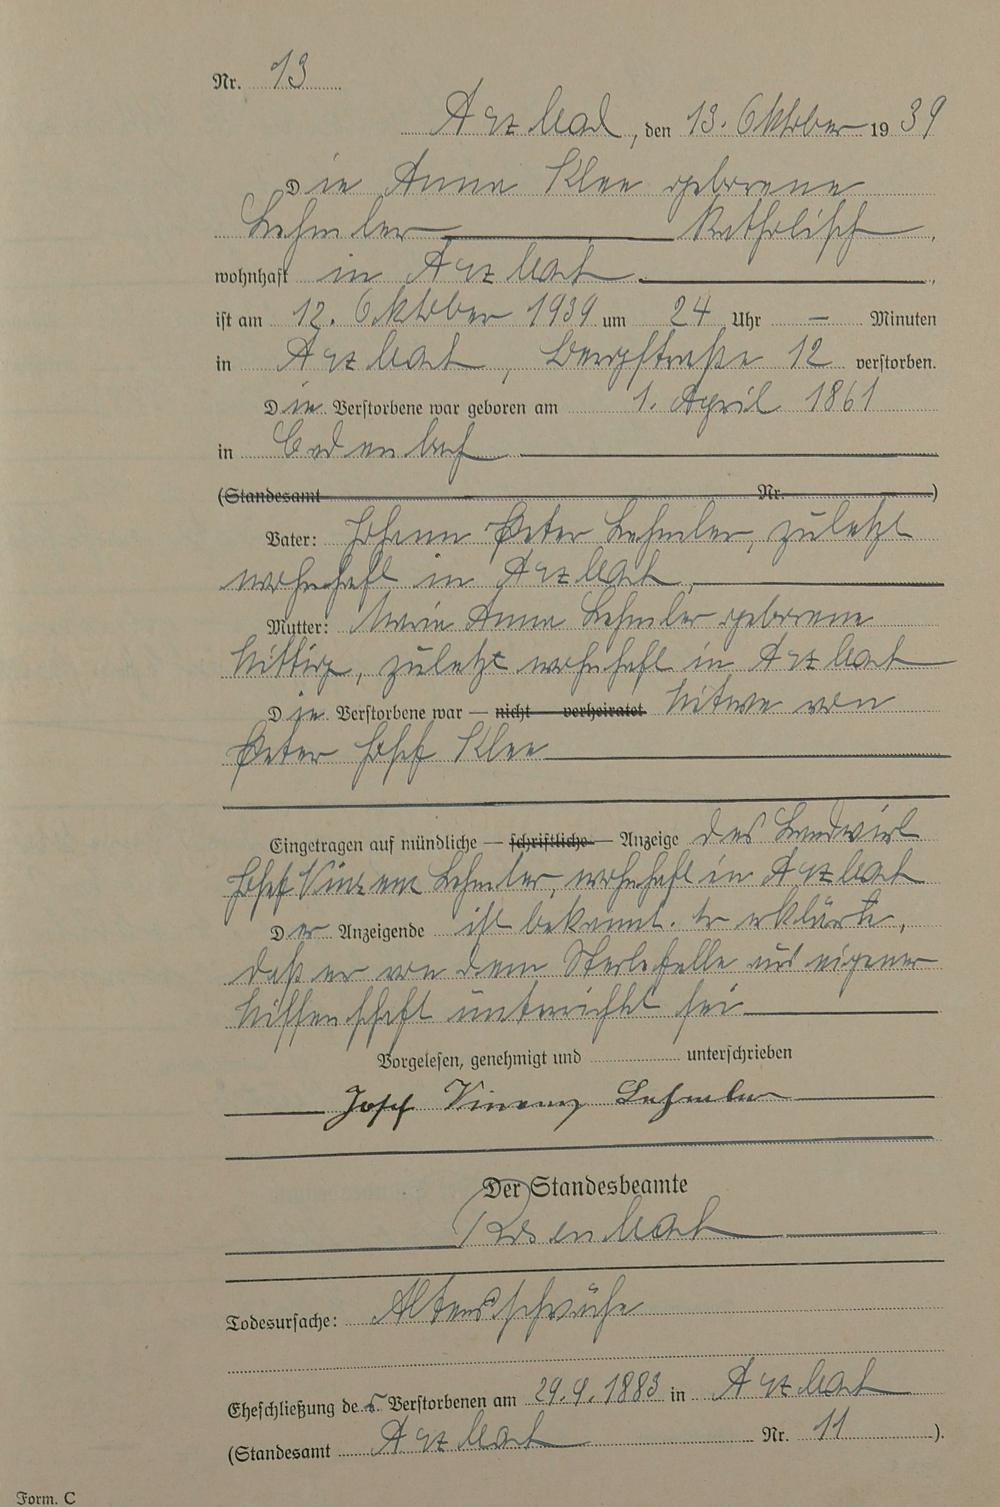 Nr. 13
Arzbach, den 13. Oktober 1939
Die Anna Klee geborene
Lehmler katholisch,
wohnhaft in Arzbach,
ist am 12. Oktober 1939 um 24 Uhr – Minuten
in Arzbach, Bergstraße 12 verstorben.
Die Verstorbene war geboren am 1. April 1861
in
(Standesamt Nr. )
Vater: Johann Peter Lehmler, zuletzt
wohnhaft in Arzbach,
Mutter: Maria Anna Lehmler geborene
Wittig, zuletzt wohnhaft in Arzbach
Die Verstorbene war — nicht verheiratet Witwe von
Peter Josef Klee
Eingetragen auf mündliche — schriftliche — Anzeige des Landwirt
Josef Vinzenz Lehmler, wohnhaft in Arzbach
Der Anzeigende ist bekannt. Er erklärte,
daß er von dem Sterbefalle aus eigener
Wissenschaft unterrichtet sei
Vorgelesen, genehmigt und unterschrieben
Josef Vinzenz Lehmler
Der Standesbeamte
Rosenbach
Todesursache: Altersschwäche
Eheschließung der Verstorbenen am 29.9.1883 in Arzbach
(Standesamt Arzbach Nr. 11 ).
Form. C